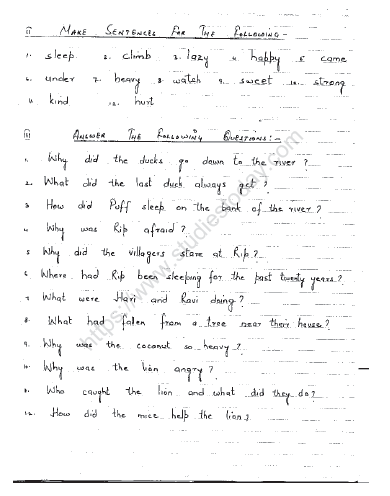 ii Make Sentences For The Following -
1. sleep 2. climb 3. lazy 4. happy 5 came
6. under 7. heavy 8. watch 9. sweet 10. strong
11. kind 12. hurt
iii Answer The Following Questions:-
1. Why did the ducks go down to the river?
2. What did the last duck always get?
3. How did Puff sleep on the bank of the river?
4. Why was Rip afraid?
5 Why did the villagers stare at Rip?
6. Where had Rip been sleeping for the past twenty years?
7. What were Hari and Ravi doing?
8. What had falen from a tree near their house?
9. Why was the coconut so heavy?
10. Why was the lion angry?
11. Who caught the lion and what did they do?
12. How did the mice help the lion?
https://www.studiestoday.com